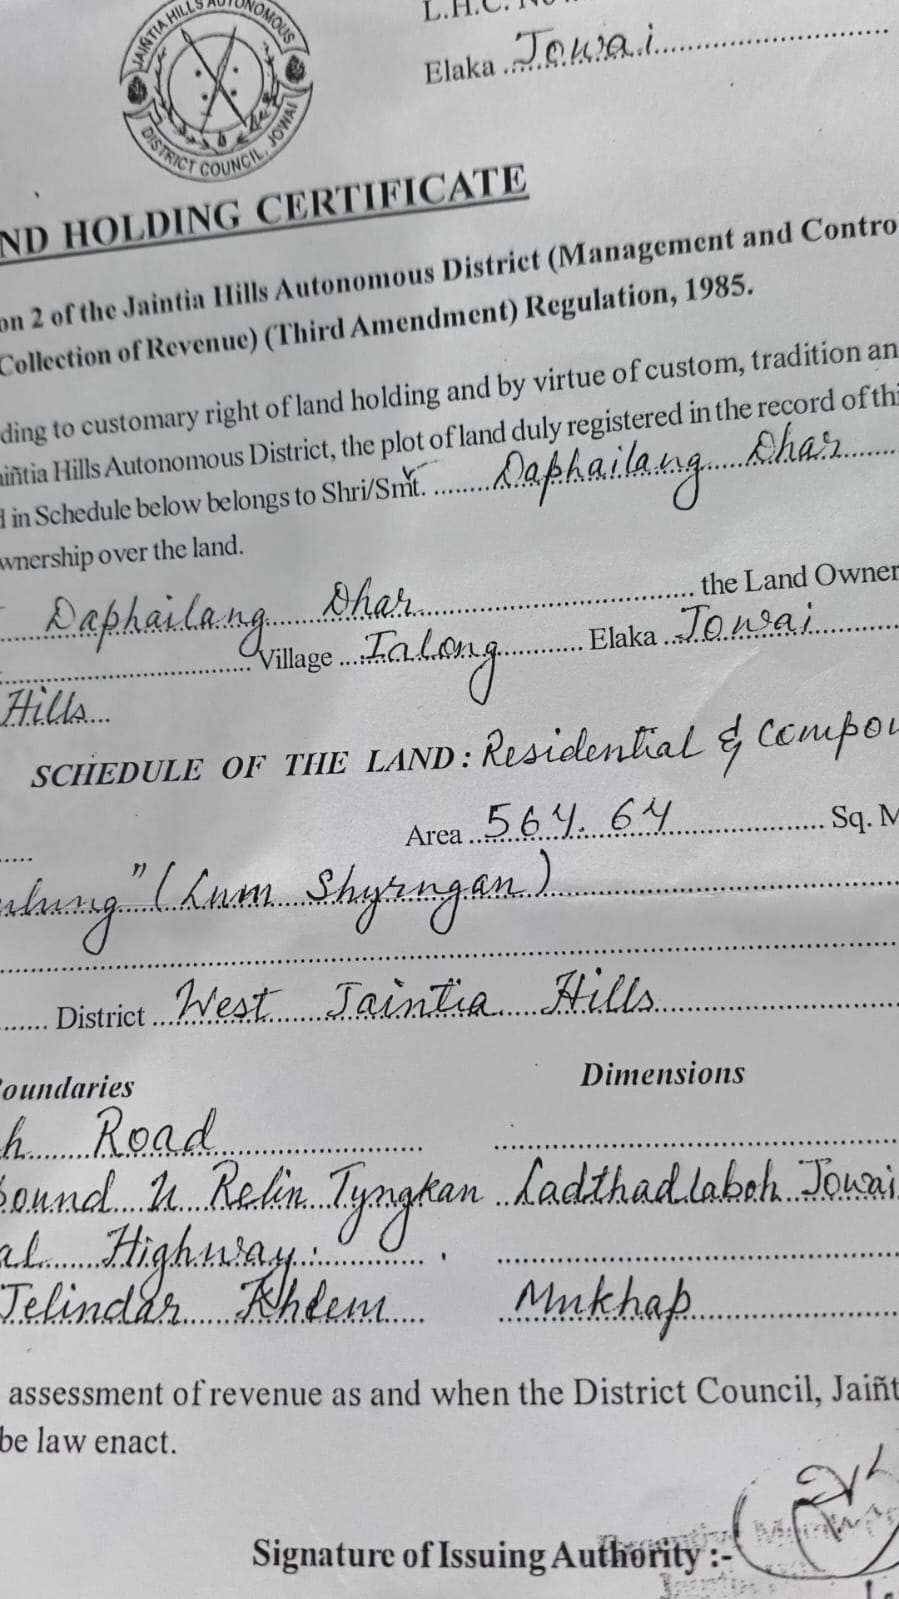 JAIÑTIA HILLS AUTONOMOUS
DISTRICT COUNCIL, JOWAI
L.H.C.
Elaka Jowai
ND HOLDING CERTIFICATE
on 2 of the Jaintia Hills Autonomous District (Management and Contro
Collection of Revenue) (Third Amendment) Regulation, 1985.
ding to customary right of land holding and by virtue of custom, tradition an
aiñtia Hills Autonomous District, the plot of land duly registered in the record of thi
d in Schedule below belongs to Shri/Smt. Daphailang Dhar
wnership over the land.
Daphailang Dhar the Land Owner
Village Ialong Elaka Jowai
Hills
SCHEDULE OF THE LAND : Residential & Compou
Area 564.64 Sq. M
ulung" (Lum Shyrngan)
District West Jaintia Hills
Boundaries Dimensions
h Road
ound U Relin Tyngkan Ladthadlaboh Jowai
al Highway
Telindar Khlem Mukhap
assessment of revenue as and when the District Council, Jaiñt
be law enact.
Signature of Issuing Authority :-